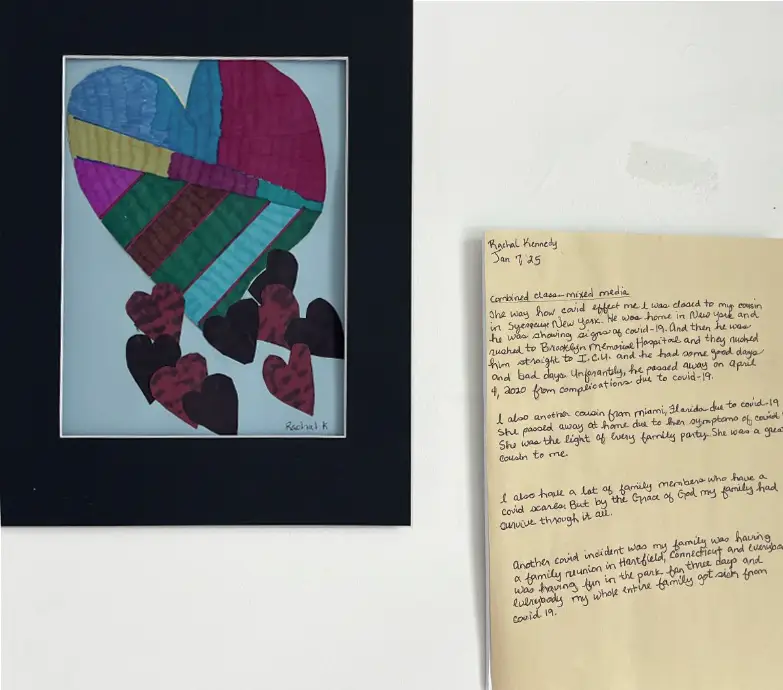 Rachal K
Rachal Kennedy
Jan 7, 25
Combined class-mixed media
The way how covid effect me I was closed to my cousin
in Syracuse New York. He was home in New York and
he was showing signs of covid-19. And then he was
rushed to Brooklyn Memorial Hospital and they rushed
him straight to I.C.U. and he had some good days
and bad days Unforantly, he passed away on April
4, 2020 from complications due to covid-19.
I also another cousin from miami, Florida due to covid-19
She passed away at home due to her symptoms of covid
She was the light of every family party. She was a grea
cousin to me.
I also have a lot of family members who have a
covid scares. But by the Grace of God my family had
survive through it all.
Another covid incident was my family was having
a family reunion in Hartfield, Connecticut and everybo
was having fun in the park for three days and
everybody my whole entire family got sick from
covid 19.